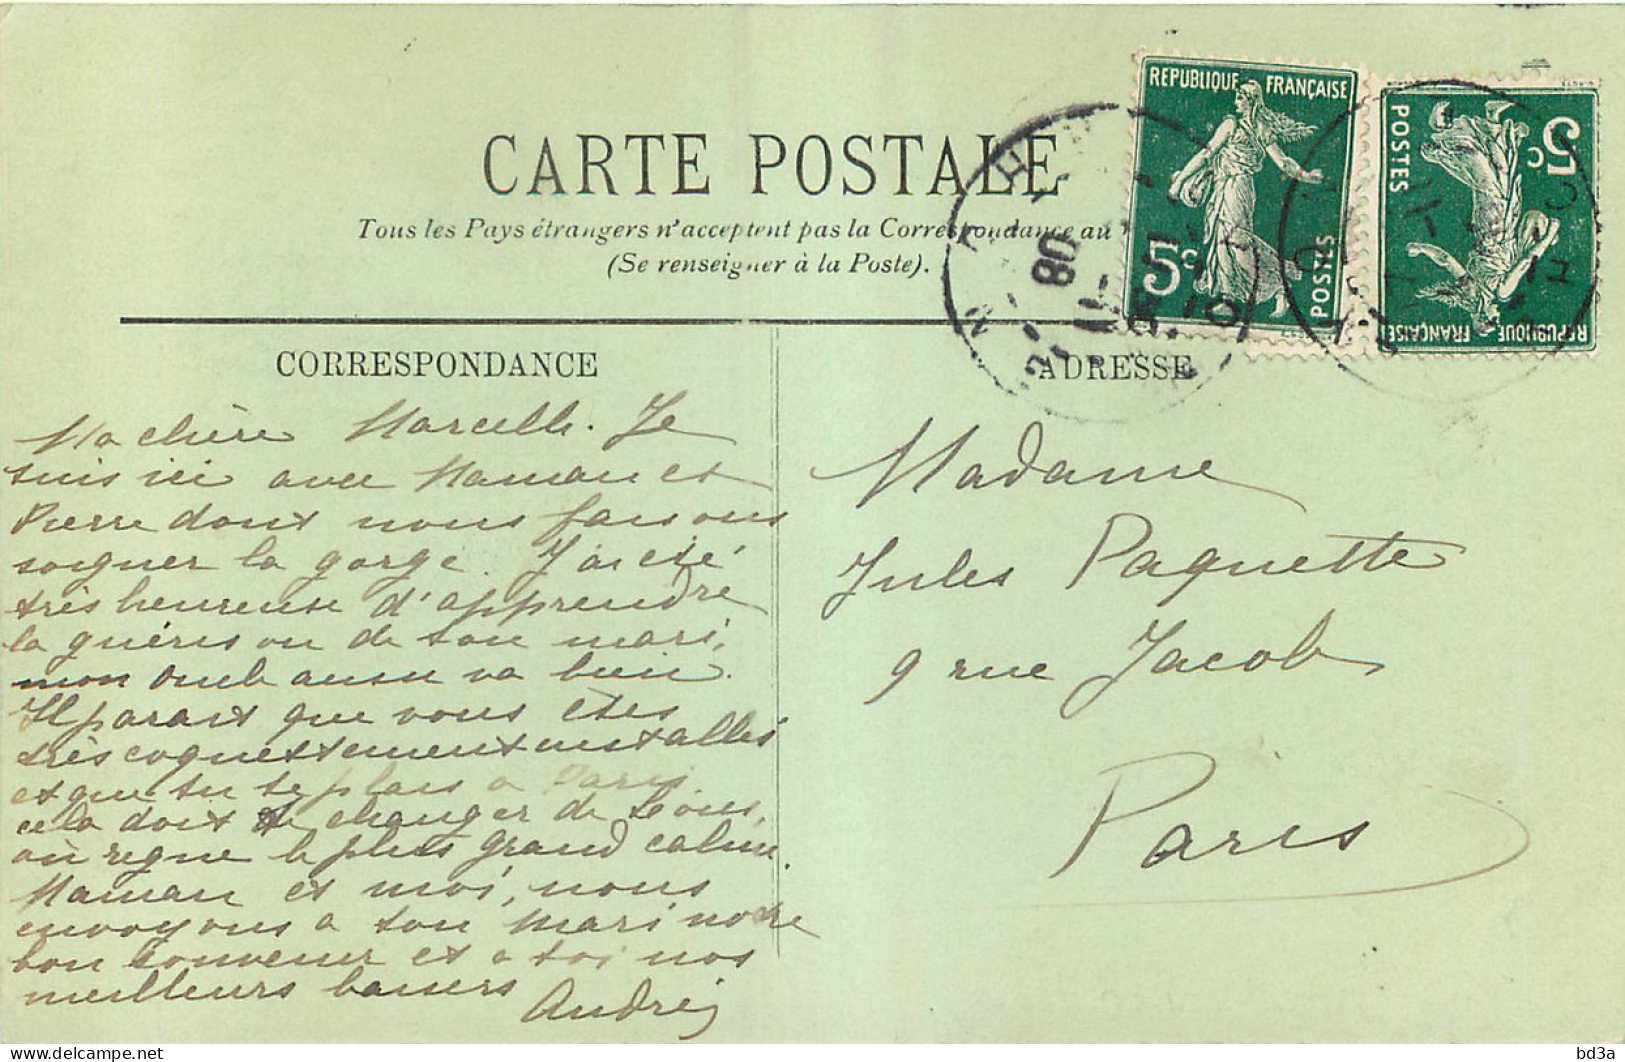 CARTE POSTALE
Tous les Pays étrangers n'acceptent pas la Correspondance au
(Se renseigner à la Poste).
REPUBLIQUE FRANÇAISE
5c
POSTES
REPUBLIQUE FRANÇAISE
5c
POSTES
08
CORRESPONDANCE
Ma chère Marcelle. Je
suis ici avec Maman et
Pierre dont nous faisons
soigner la gorge. J'ai été
très heureuse d'apprendre
la guérison de ton mari,
mon oncle aussi va bien.
Il parait que vous êtes
très coquettement installés
et que tu te plais a Paris
cela doit te changer de Tours,
où regne le plus grand calme.
Maman et moi, nous
envoyons a ton mari notre
bon souvenir et a toi nos
meilleurs baisers
Andrée
ADRESSE
Madame
Jules Paquette
9 rue Jacob
Paris
delcampe.net
bd3a